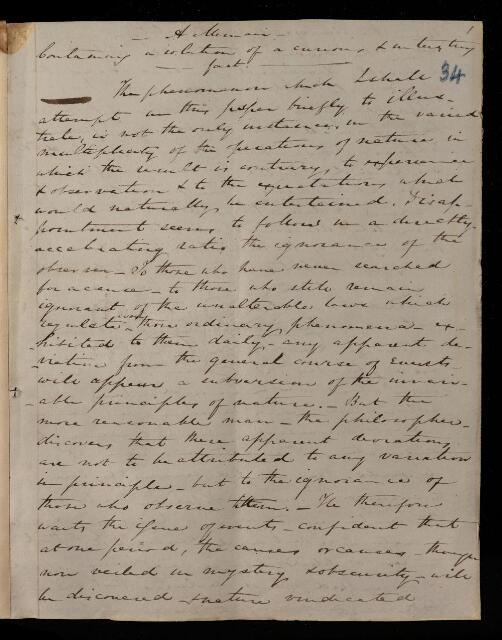 1
— A Memoir —
Containing a solution of a curious, & interesting
fact.
34
The phenomenon which I shall
attempt in this paper briefly to illus-
trate, is not the only instance, in the varied
multiplicity of the operations of nature in
which the result is contrary, to experience
& observation & to the expectations which
would naturally be entertained. Disap-
pointment seems to follow in a directly
accelerating ratio the ignorance of the
observer — To those who have never searched
for a cause — to those who still remain
ignorant of the unalterable laws which
regulate even those ordinary, phenomena — ex-
hibited to them daily, — any apparent de-
viation from the general course of events
will appear a subversion of the invari-
able principles of nature. — But the
more reasonable man — the philosopher —
discovers that these apparent deviations,
are not to be attributed to any variation
in principles — but to the ignorance of
those who observe them. — He therefore
waits the issue of events — confident that
at one period, the causes or cause — though
now veiled in mystery & obscurity — will
be discovered — & nature vindicated